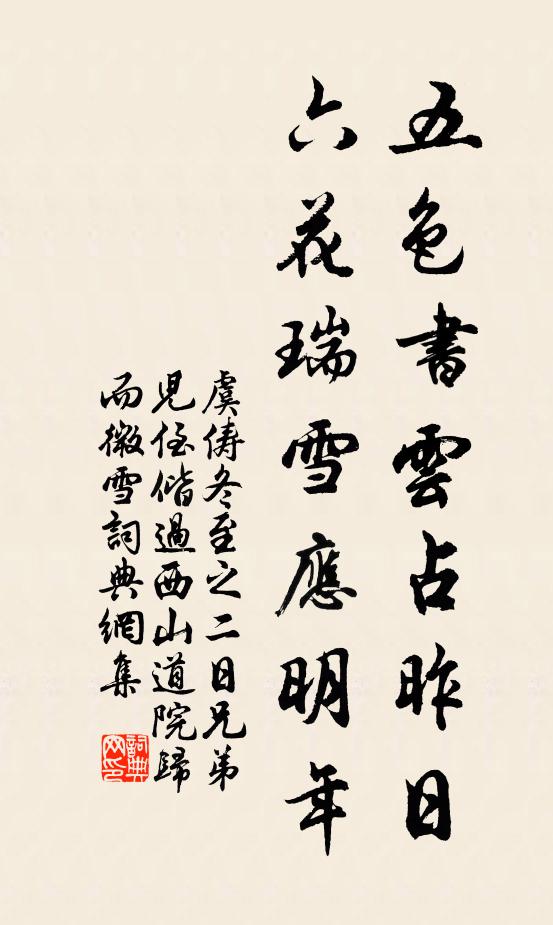 五色書雲占昨日
六花瑞雪應明年
虞儔冬至之二日兄弟
児侄偕過西山道院歸
而微雪詞典網集
詞典
网印